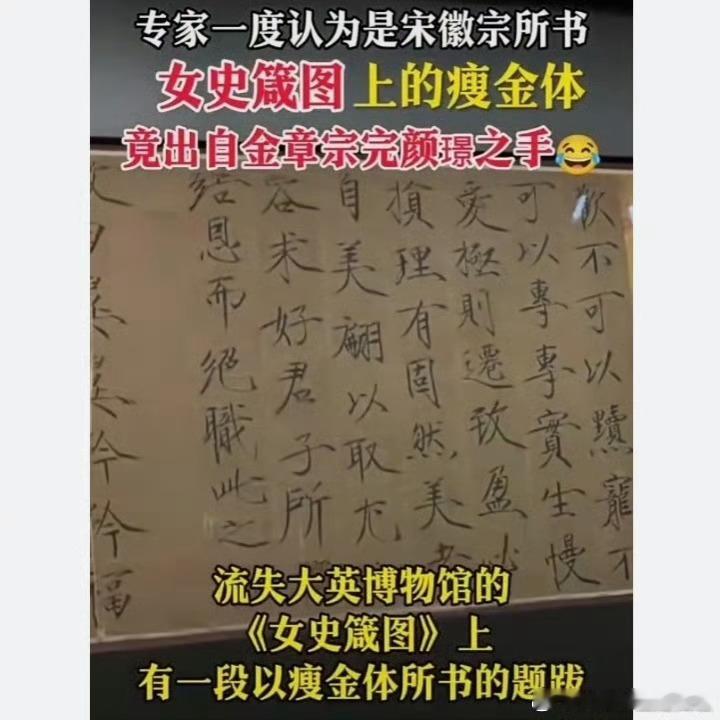 专家一度认为是宋徽宗所书
女史箴图上的瘦金体
竟出自金章宗完颜璟之手😂
歡不可以黷寵不
可以專專實生慢
愛極則遷致盈必
損理有固然美者
自美翩以取尤
容求好君子所
結恩而絕職此之
故曰翼翼矜矜福
流失大英博物馆的
《女史箴图》上
有一段以瘦金体所书的题跋